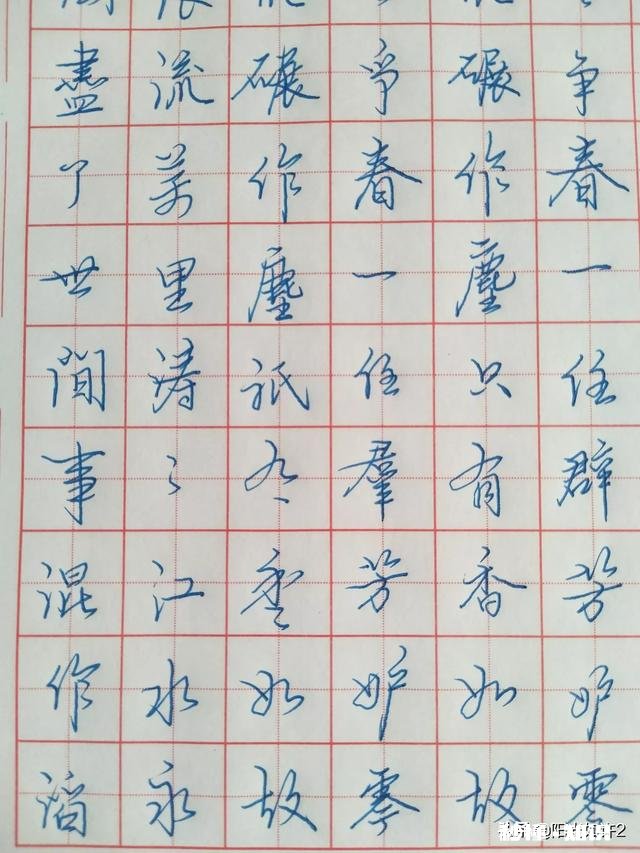 争春一任群芳妒零
碾作塵只有香如故
爭春一任羣芳妒零
碾作塵祇有香如故
流萬里濤々江水永
盡了世間事混作滔